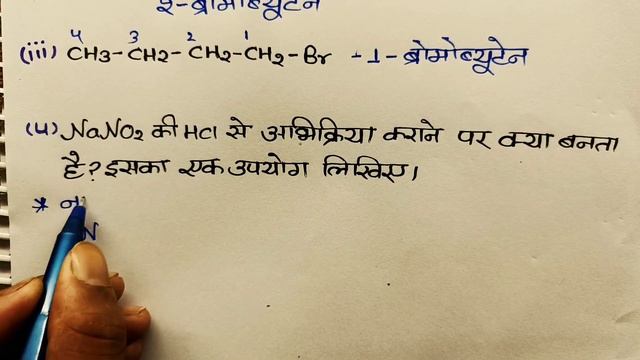 २-ब्रोमोब्यूटेन
(iii) CH3-CH2-CH2-CH2-Br -1-ब्रोमोब्यूटेन
4 3 2 1
(4) NaNO2 की HCl से अभिक्रिया कराने पर क्या बनता
है? इसका एक उपयोग लिखिए।
*
N